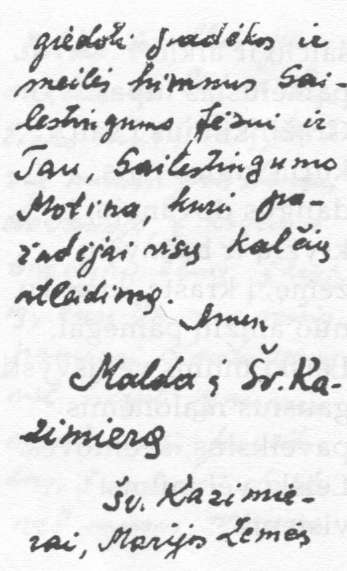 giedoti padėkos ir
meilės himnus Gai-
lestingumo Jėzui ir
Tau, Gailestingumo
Motina, kuri pa-
žadėjai visų kalčių
atleidimą.
Amen
Malda į Šv. Ka-
zimierą
Šv. Kazimie-
rai, Marijos Žemės